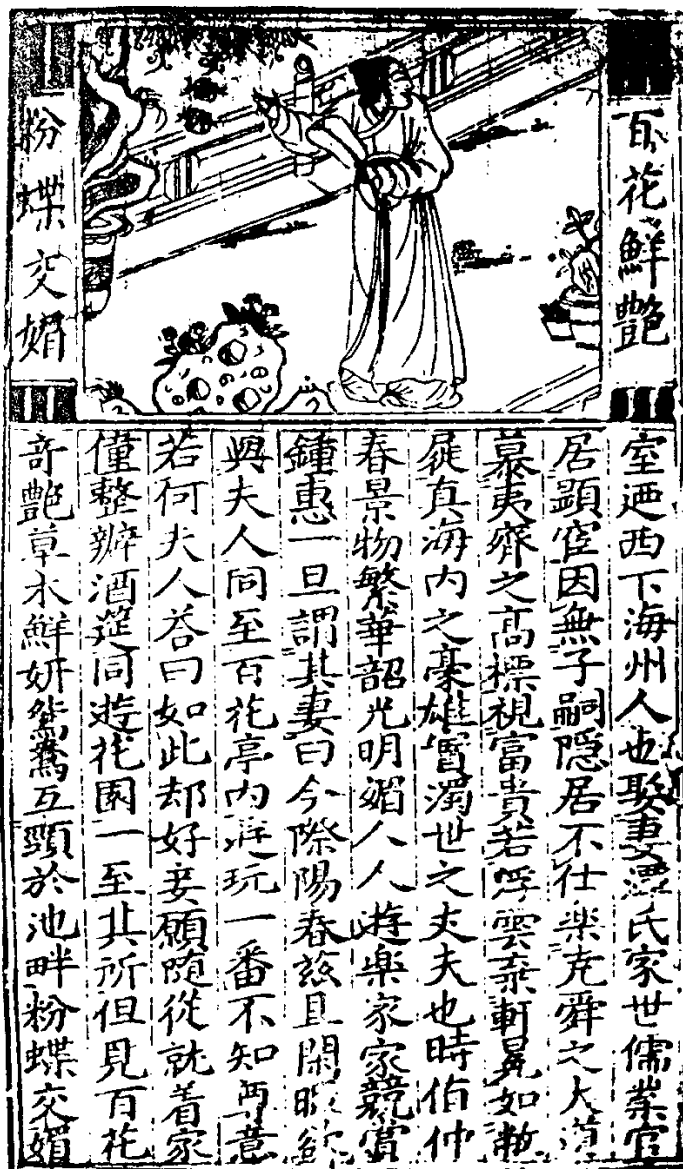 百花鮮艷
粉蝶交媚
室迺西下海州人也娶妻潭氏家世儒業官
居顕宦因無子嗣隠居不仕楽尭舜之大道
慕夷齊之髙標視富貴若浮雲棄軒冕如敝
屣真海内之豪雄寔濁世之丈夫也時伯仲
春景物繁華韶光明媚人人遊楽家家競賞
鍾惠一旦謂其妻曰今際陽春兹且閑暇欲
與夫人同至百花亭内遊玩一番不知尊意
若何夫人荅曰如此却好妾願随從就着家
僮整辦酒筵同遊花園一至其所但見百花
竒艷草木鮮妍鴛鴦互頸於池畔粉蝶交媚